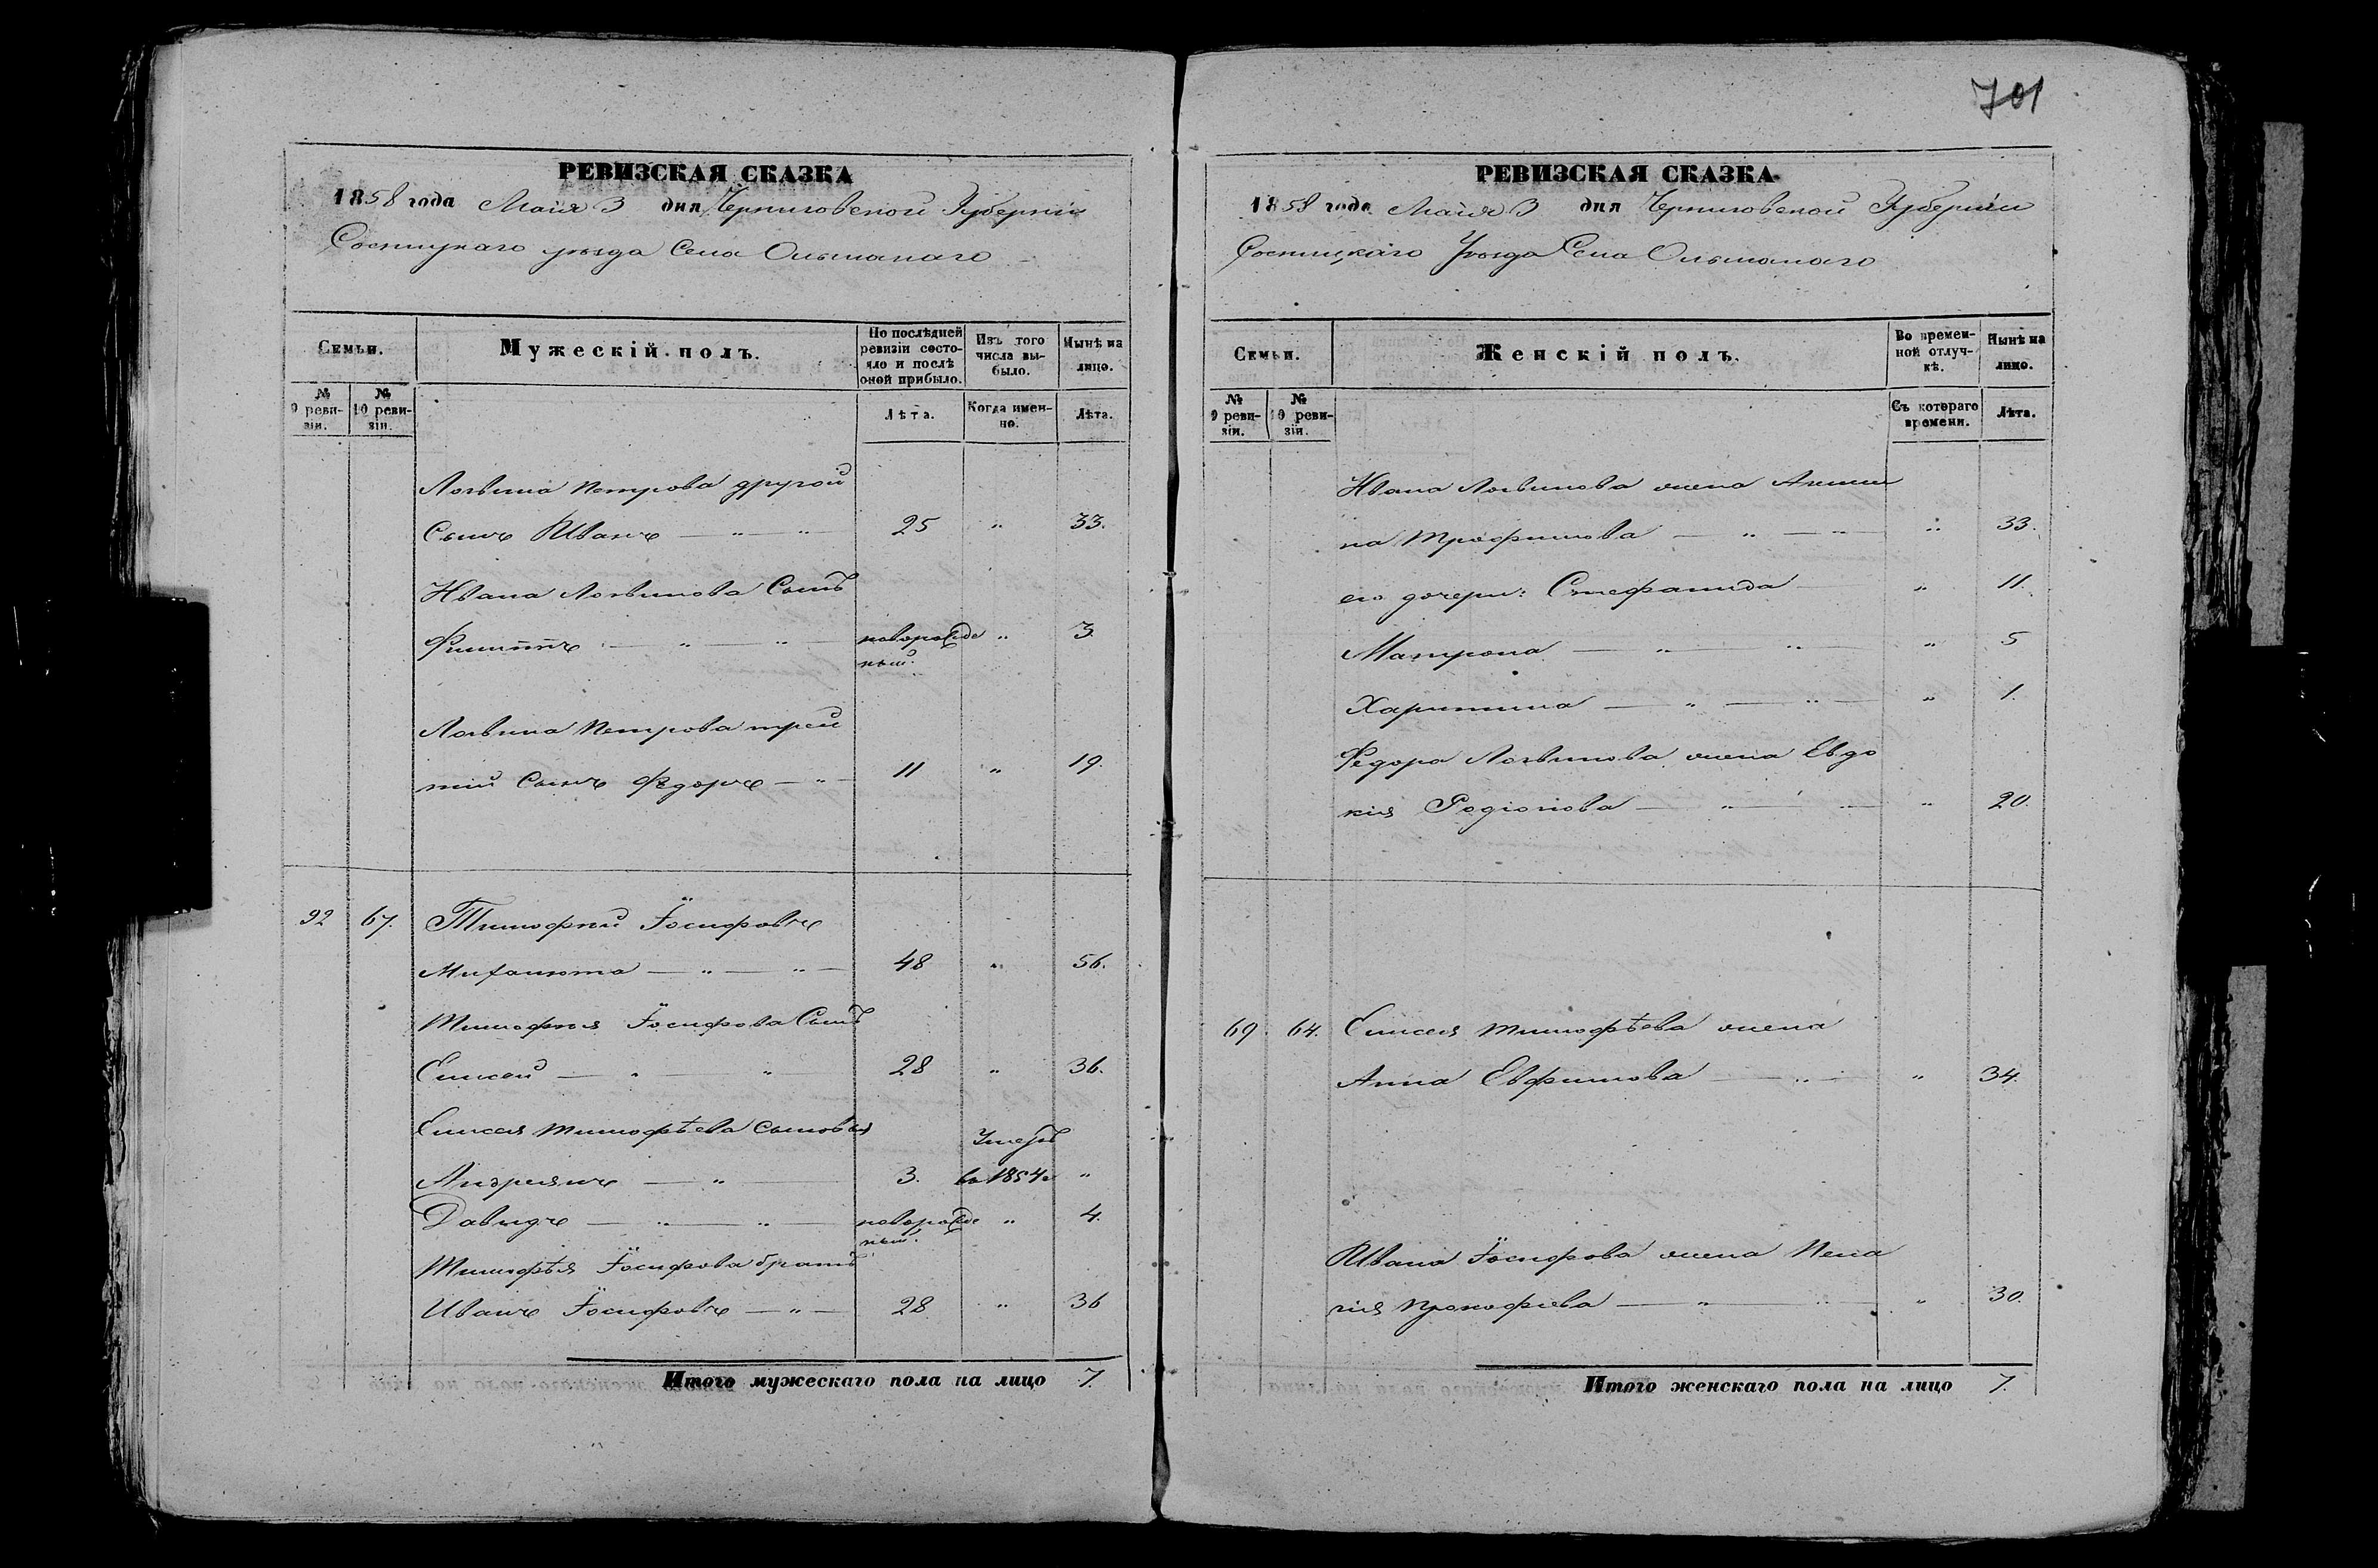 701
РЕВИЗСКАЯ СКАЗКА
1858 года Маія 3 дня Черниговской Губерніи
Сосницкаго уѣзда Села Ольшанаго
Семьи.
Мужескій полъ.
По послѣдней ревизіи состояло и послѣ оной прибыло.
Изъ того числа выбыло.
Нынѣ на лицо.
№ 9 ревизіи.
№ 10 ревизіи.
Лѣта.
Когда именно.
Лѣта.
Логвина Петрова другой
Сынъ Иванъ — " — " 25 " 33.
Ивана Логвинова Сынъ
Филиппъ — " — " — новорожденный. " 3.
Логвина Петрова трей
тій Сынъ Федоръ — " — 11 " 19.
92 67. Тимофей Іосифовъ
Михалюта — " — " — 48 " 56.
Тимофея Іосифова Сынъ
Елисей — " — " 28 " 36.
Елисея Тимофѣева сыновья
Андреянъ — " — 3. Умеръ в 1854 г "
Давыдъ — " — " — новорожденный. " 4.
Тимофѣя Іосифова братъ
Иванъ Іосифовъ — " — 28 " 36
Итого мужескаго пола на лицо 7.
РЕВИЗСКАЯ СКАЗКА
1858 года Маія 3 дня Черниговской Губерніи
Сосницкаго Уѣзда Села Ольшанаго
Семьи.
Женскій полъ.
Во временной отлучкѣ.
Нынѣ на лицо.
№ 9 ревизіи.
№ 10 ревизіи.
Съ котораго времени.
Лѣта.
Ивана Логвинова жена Акили
на Трофимова — " — " — " 33.
его дочери: Стефанида " 11.
Матрона — " — " " 5
Харитина — " — " — " 1.
Федора Логвинова жена Евдо
кия Родіонова — " — " 20.
69. 64. Елисея Тимофѣева жена
Анна Евфимова — " — " 34.
Ивана Іосифова жена Пела
гия Прокофиева — " — " 30.
Итого женскаго пола на лицо 7.